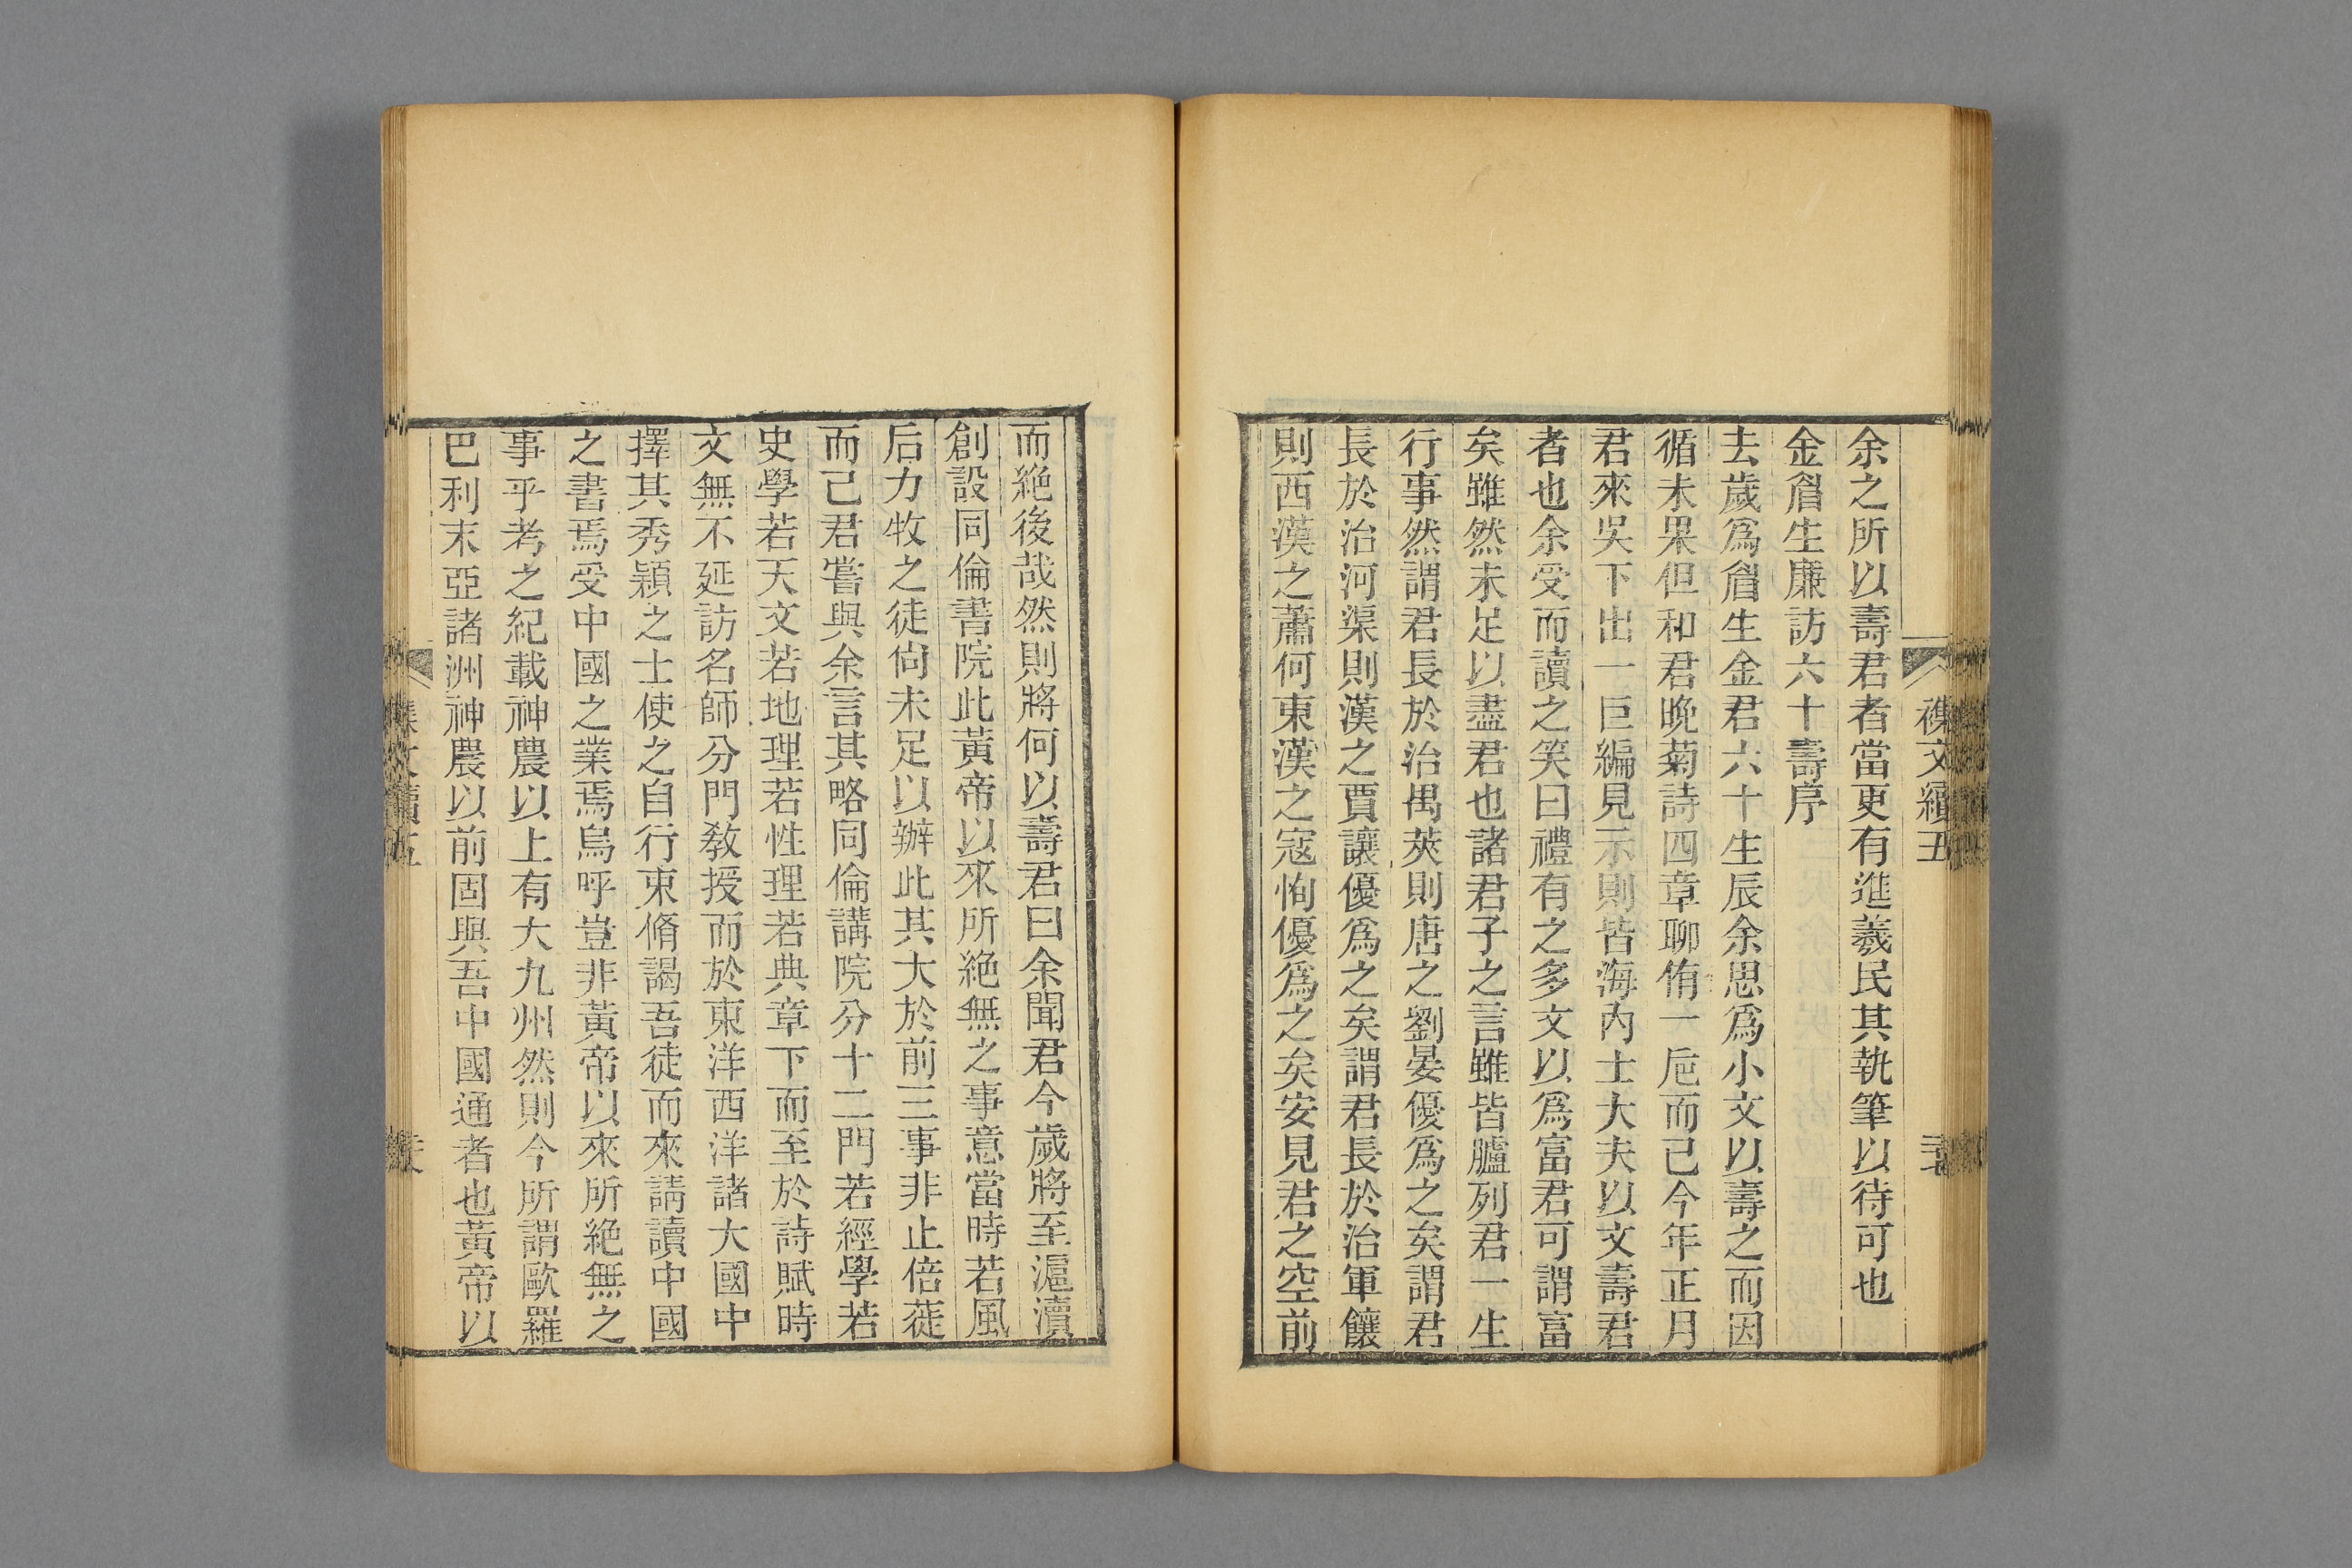 余之所以壽君者當更有進羲民其執筆以待可也
金眉生廉訪六十壽序
去歲爲眉生金君六十生辰余思爲小文以壽之而因
循未果但和君晚菊詩四章聊侑一卮而已今年正月
君來吳下出一巨編見示則皆海內士大夫以文壽君
者也余受而讀之笑曰禮有之多文以爲富君可謂富
矣雖然未足以盡君也諸君子之言雖皆臚列君一生
行事然謂君長於治禺莢則唐之劉晏優爲之矣謂君
長於治河渠則漢之賈讓優爲之矣謂君長於治軍饟
則西漢之蕭何東漢之寇恂優爲之矣安見君之空前
而絕後哉然則將何以壽君曰余聞君今歲將至滬瀆
創設同倫書院此黃帝以來所絕無之事意當時若風
后力牧之徒尙未足以辦此其大於前三事非止倍蓰
而已君嘗與余言其略同倫講院分十二門若經學若
史學若天文若地理若性理若典章下而至於詩賦時
文無不延訪名師分門敎授而於東洋西洋諸大國中
擇其秀穎之士使之自行束脩謁吾徒而來請讀中國
之書焉受中國之業焉烏呼豈非黃帝以來所絕無之
事乎考之紀載神農以上有大九州然則今所謂歐羅
巴利末亞諸洲神農以前固與吾中國通者也黃帝以